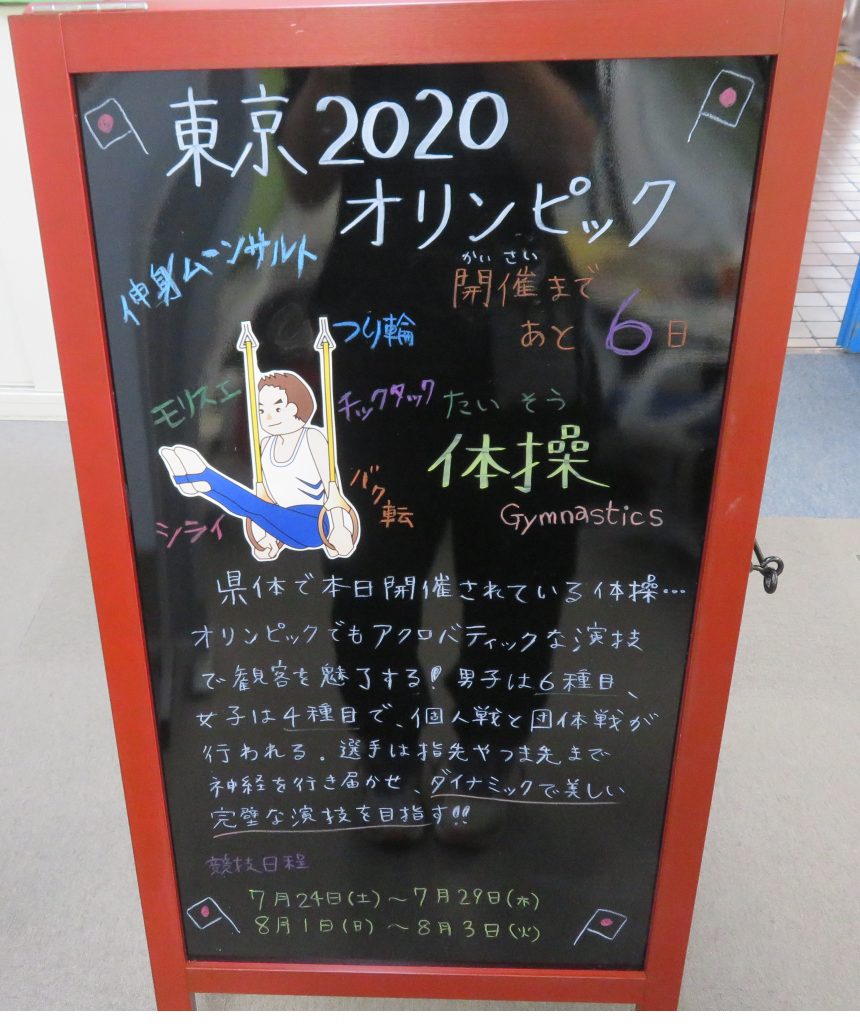 東京2020
オリンピック
かいさい
開催まで
あと 6 日
伸身ムーンサルト
つり輪
モリスエ
チックタック
シライ
バク
転
たいそう
体操
Gymnastics
県体で本日開催されている体操…
オリンピックでもアクロバティックな演技
で観客を魅了する! 男子は6種目、
女子は4種目で、個人戦と団体戦が
行われる。選手は指先やつま先まで
神経を行き届かせ、ダイナミックで美しい
完璧な演技を目指す!!
競技日程
7月24日(土)～7月29日(木)
8月1日(日)～8月3日(火)